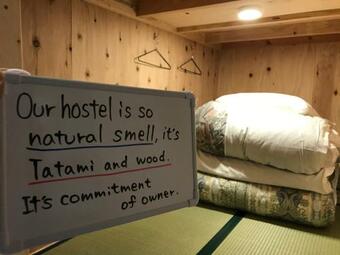 Our hostel is so
natural smell, it's
Tatami and wood.
It's commitment
of owner.